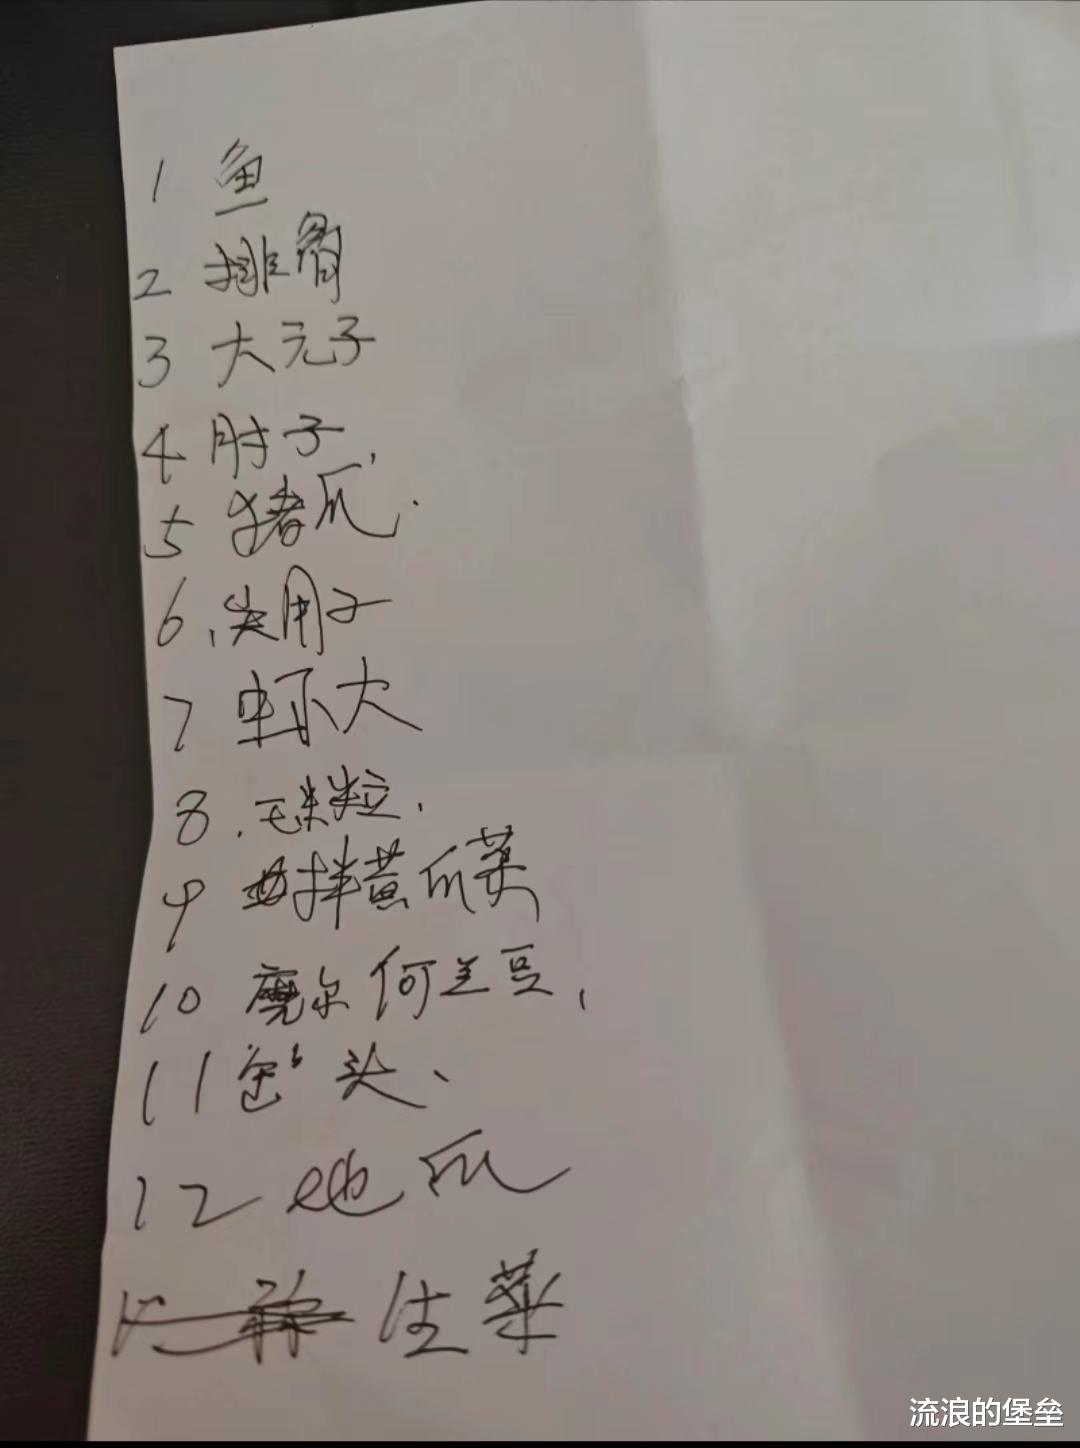 1 鱼
2 排骨
3 大元子
4 肘子.
5 猪爪.
6、尖用子
7 虾大
8、玉米粒.
9 拌黄瓜菜
10 荷兰豆、
11 头、
12 地瓜
生菜
流浪的堡垒